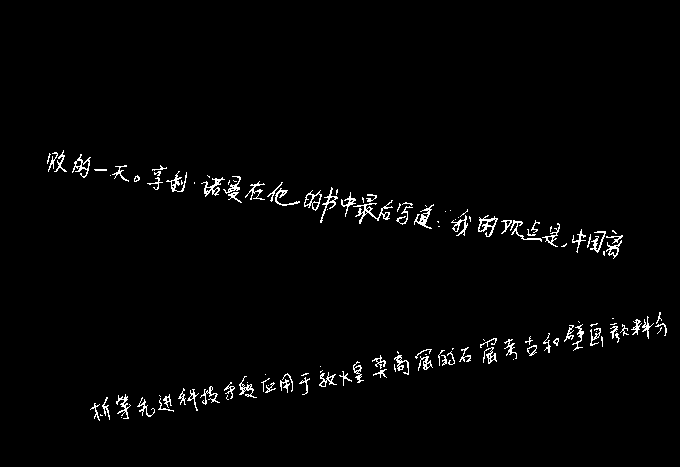 败的一天。亨利·诺曼在他的书中最后写道:“我的观点是,中国离
析等先进科技手段应用于敦煌莫高窟的石窟考古和壁画颜料分